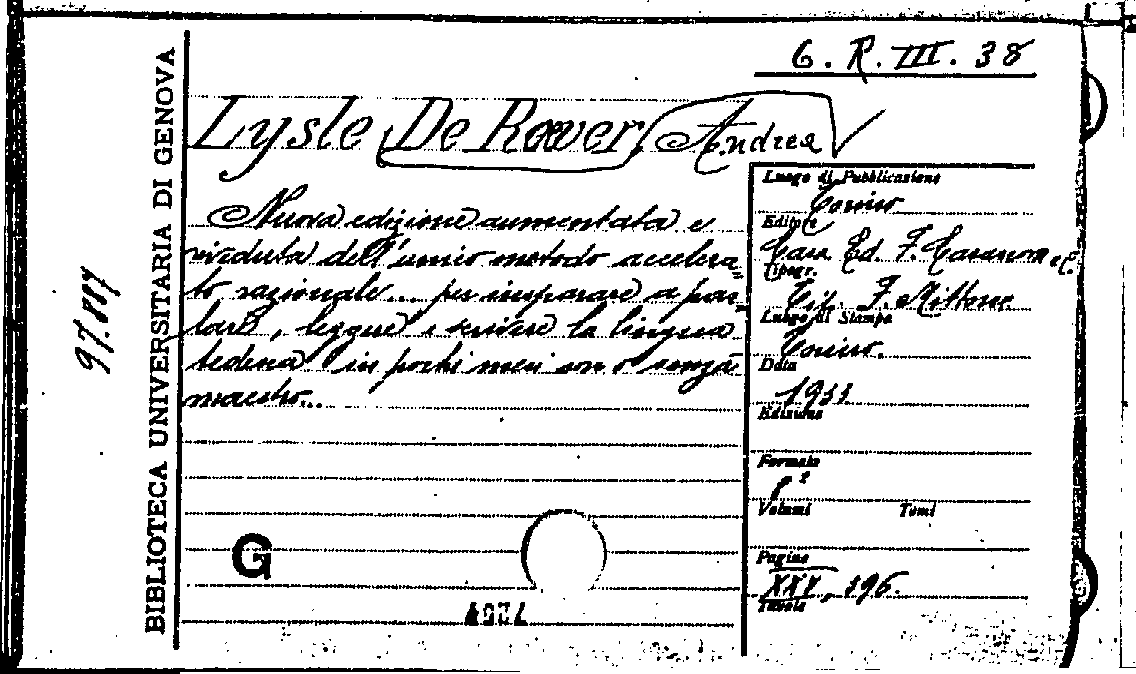 6. R. III. 38
Lysle De Roever, Andrea
Nuova edizione aumentata e
riveduta dell'unico metodo accelera=
to razionale... per imparare a par=
lare, leggere e scrivere la lingua
tedesca in pochi mesi con o senza
maestro...
Luogo di Pubblicazione
Torino
Editore
Casa Ed. F. Casanova e C.
Tipogr.
Tip. F. Mittone
Luogo di Stampa
Torino.
Data
1933
Edizione
Formato
8°
Volumi Tomi
Pagine
XXV, 196.
Tavole
BIBLIOTECA UNIVERSITARIA DI GENOVA
G